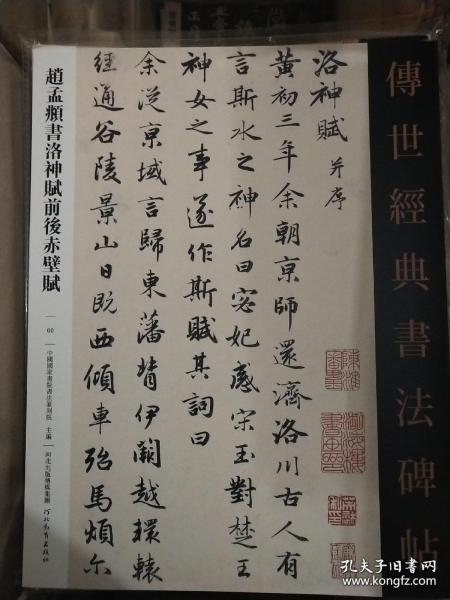 傳世經典書法碑帖
洛神賦 并序
黃初三年余朝京師還濟洛川古人有
言斯水之神名曰宓妃感宋玉對楚王
神女之事遂作斯賦其詞曰
余從京域言歸東藩背伊闕越轘轅
經通谷陵景山日既西傾車殆馬煩尒
趙孟頫書洛神賦前後赤壁賦
60
中國國家畫院書法篆刻院 主編
河北出版傳媒集團
河北教育出版社
孔夫子旧书网
www.kongfz.com